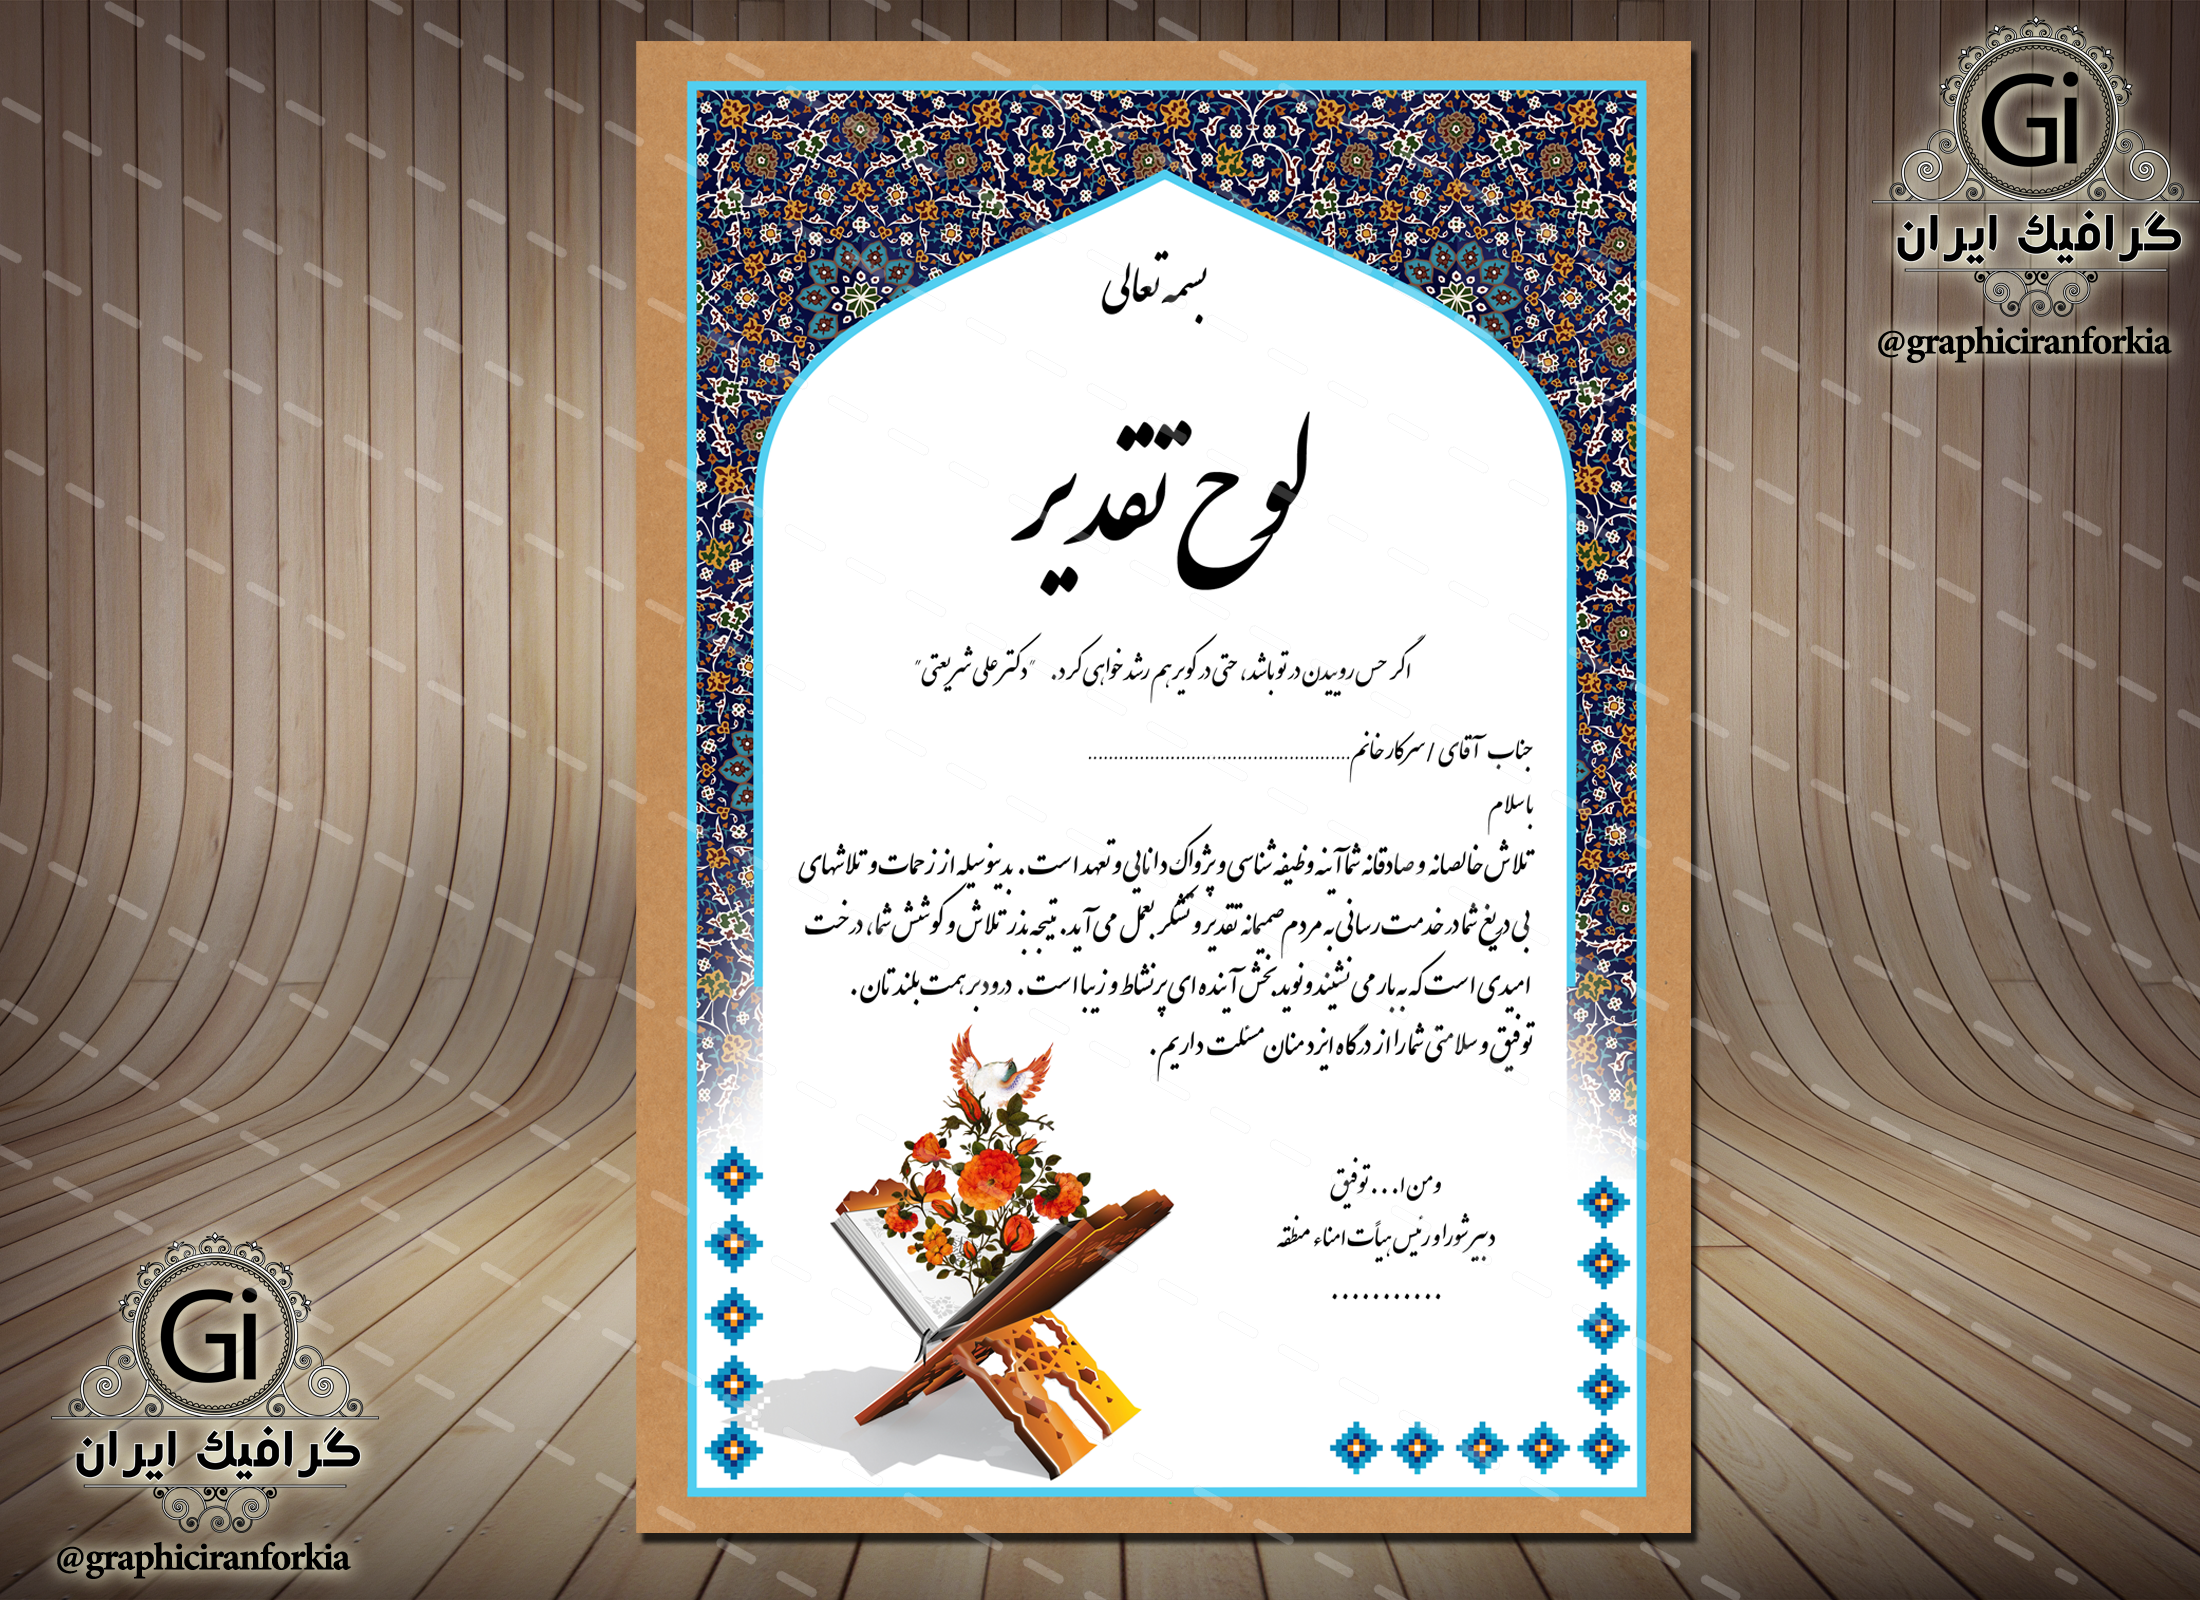 بسمه تعالی
لوح تقدیر
اگر حس روییدن در تو باشد، حتی در کویر هم رشد خواهی کرد. "دکتر علی شریعتی"
جناب آقای / سرکار خانم....................................................
با سلام
تلاش خالصانه و صادقانه شما آینه وظیفه شناسی و پژواک دانایی و تعهد است. بدینوسیله از زحمات و تلاشهای
بی دریغ شما در خدمت رسانی به مردم صمیمانه تقدیر و تشکر بعمل می آید. نتیجه بذر تلاش و کوشش شما، درخت
امیدی است که به بار می نشیند و نوید بخش آینده ای پرنشاط و زیبا است. درود بر همت بلندتان.
توفیق و سلامتی شما را از درگاه ایزد منان مسئلت داریم.
ومن ا... توفیق
دبیر شورا و رئیس هیأت امناء منطقه
...........
Gi
گرافیک ایران
@graphiciranforkia
Gi
گرافیک ایران
@graphiciranforkia